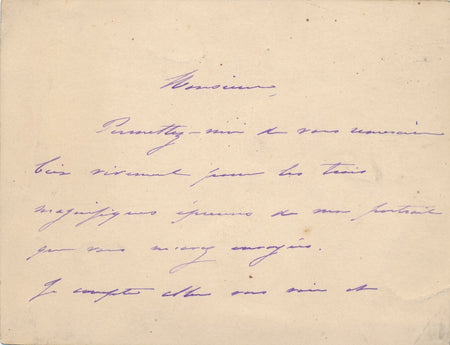 Monsieur,
Permettez-moi de vous remercier
bien vivement pour les trois
magnifiques épreuves de mon portrait
que vous m'avez envoyées.
Je compte aller vous voir et